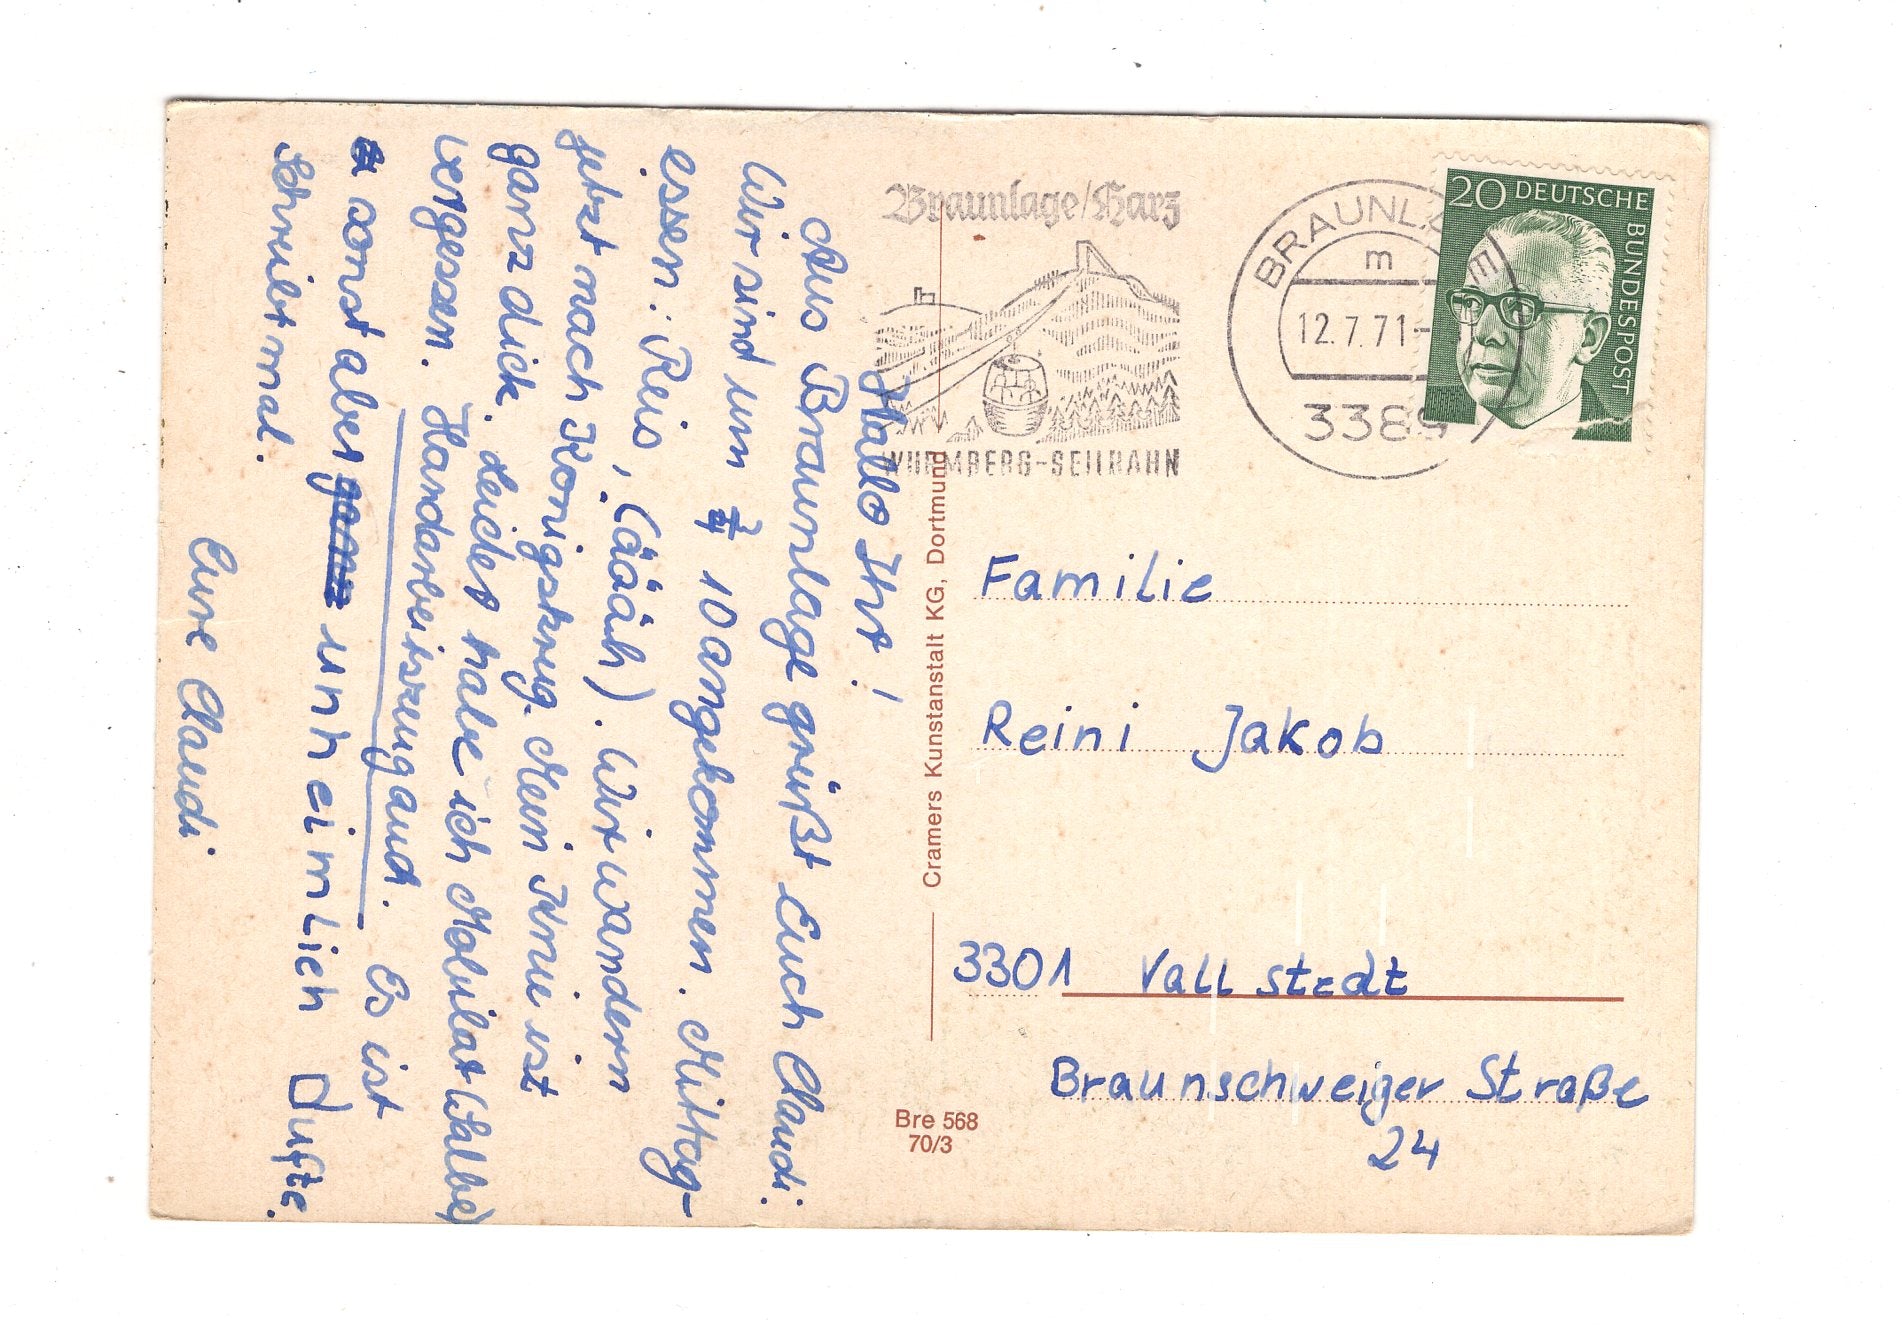 Hallo Ihr!
Aus Braunlage grüßt Euch Claudi.
Wir sind um 3/4 10 angekommen. Mittag-
essen: Reis, (ääähh). Wir wandern
jetzt nach Königskrug. Mein Knie ist
ganz dick. Leider habe ich
vergessen. Handarbeitszeug auch. Es ist
sonst aber unheimlich Dufte.
Schreibt mal.
Eure Claudi
Braunlage/Harz
WURMBERG-SEILBAHN
BRAUNLAGE
m
12.7.71-
3389
20 DEUTSCHE BUNDESPOST
Cramers Kunstanstalt KG, Dortmund
Familie
Reini Jakob
3301 Vallstedt
Braunschweiger Straße
24
Bre 568
70/3